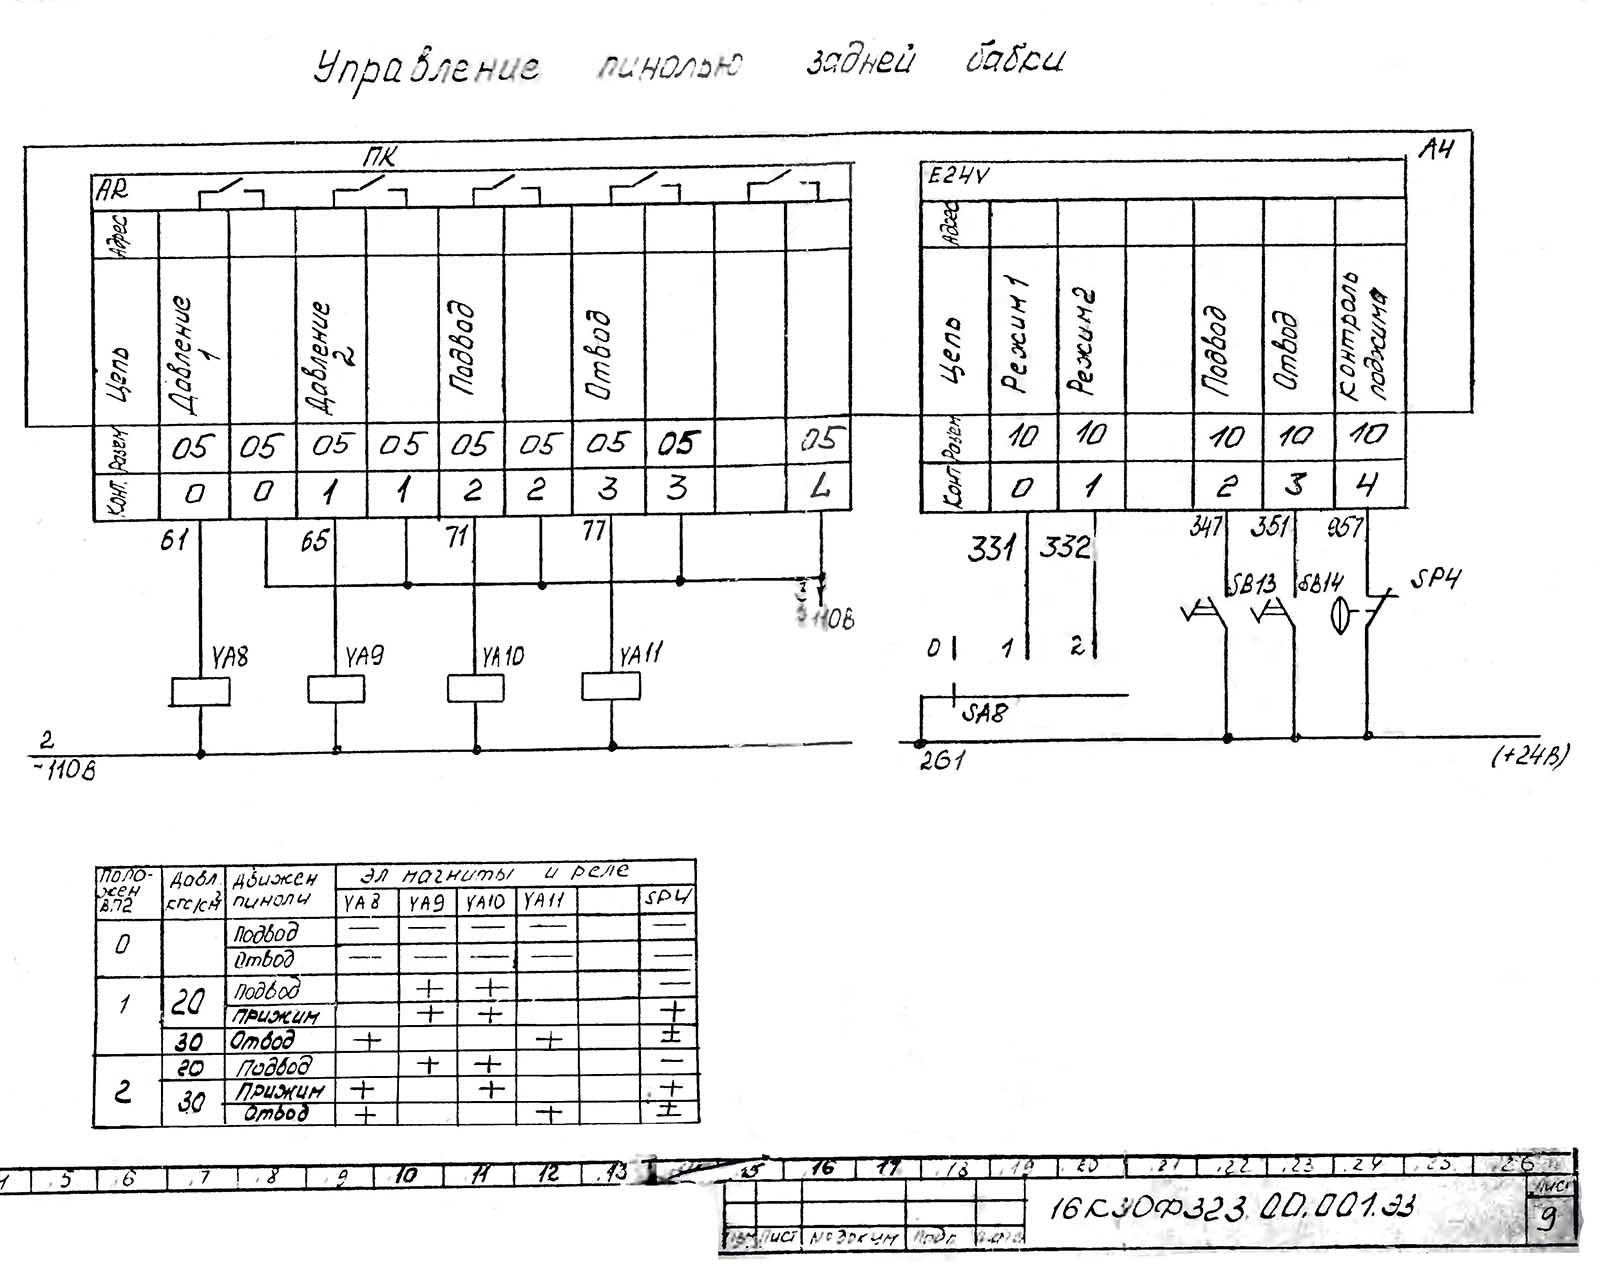 Управление пинолью задней бабки
А4
ПК
AR
Адрес
Цепь Давление 1 Давление 2 Подвод Отвод
Разъем 05 05 05 05 05 05 05 05 05
Конт. 0 0 1 1 2 2 3 3 L
61 65 71 77
110В
YA8 YA9 YA10 YA11
2
~110В
E24V
Адрес
Цепь Режим 1 Режим 2 Подвод Отвод Контроль поджима
Разъем 10 10 10 10 10
Конт 0 1 2 3 4
331 332 347 351 957
SB13 SB14 SP4
0 1 2
SA8
261 (+24В)
Положен В.72 Давл. кгс/см² Движен пиноли Эл магниты и реле
YA8 YA9 YA10 YA11 SP4
0 Подвод — — — — —
Отвод — — — — —
1 20 Подвод + + —
Прижим + + +
30 Отвод + + ±
2 20 Подвод + + —
30 Прижим + + +
Отвод + + ±
.5 .6 .7 .8 .9 10 11 12 .13 15 16 17 .18 .19 20 .21 .22 .23 .24 .25 .26
16К30Ф323.00.001.Э3
Лист
9
Лист № докум Подп